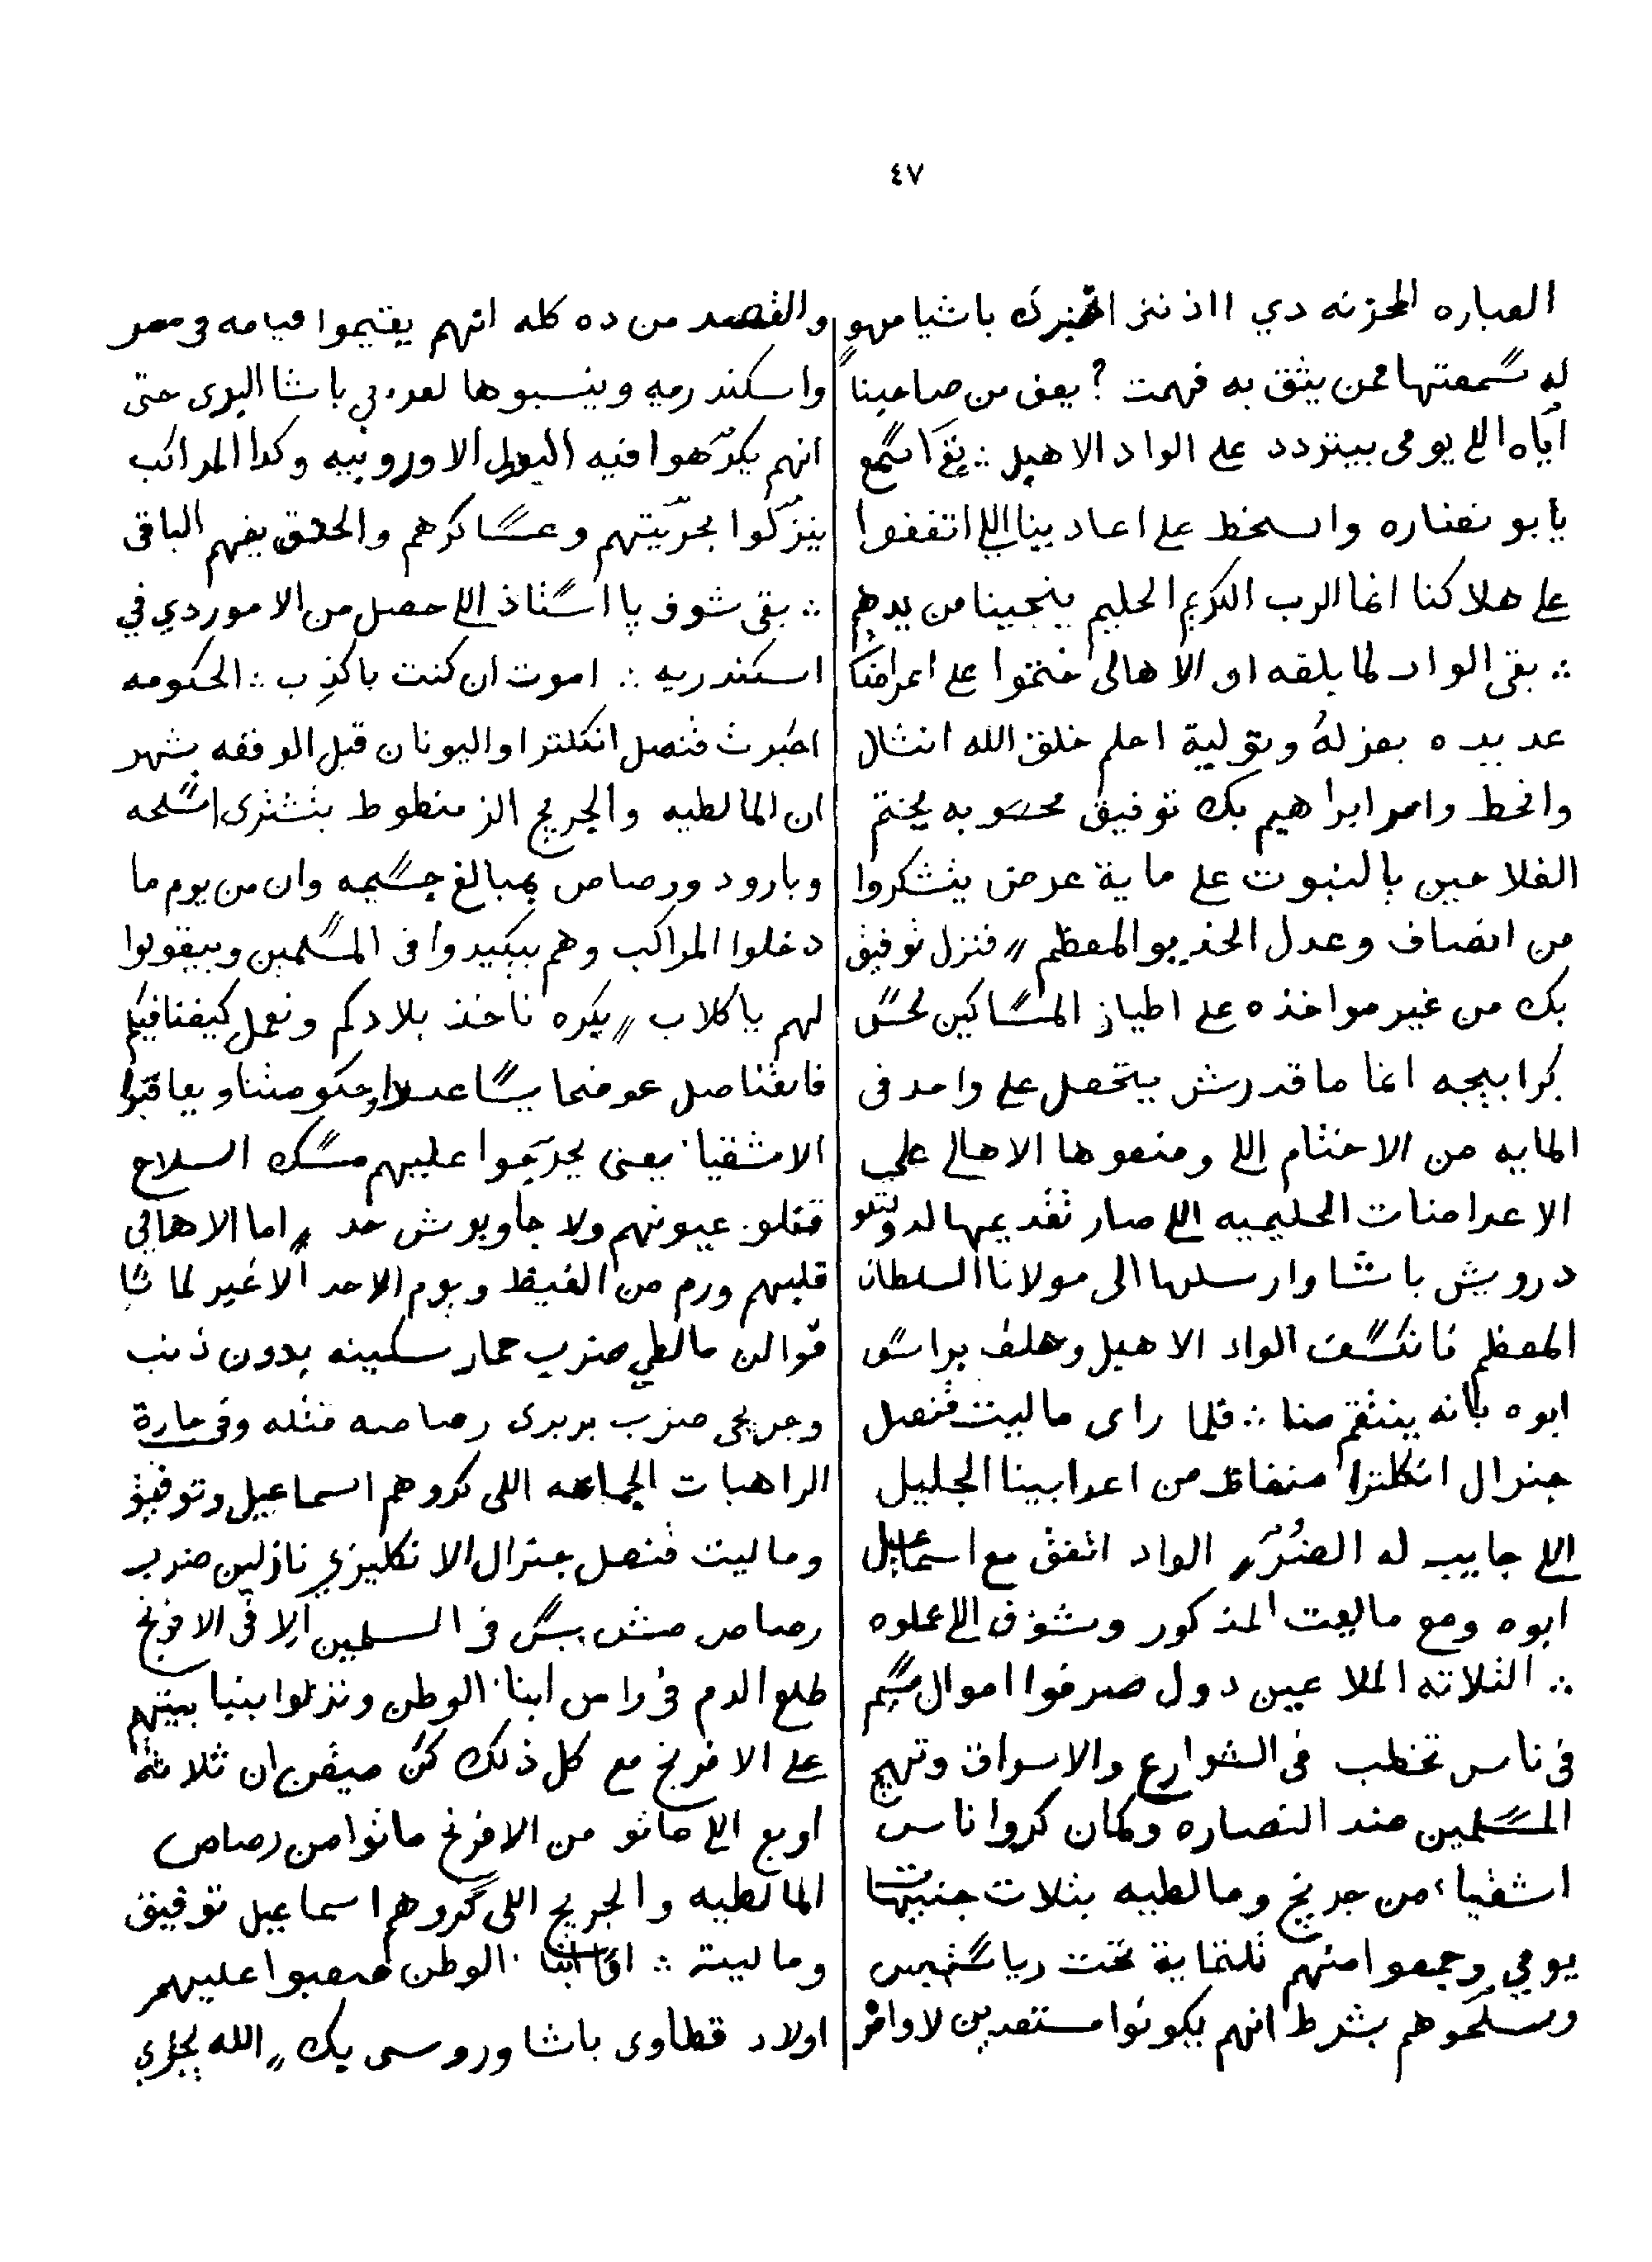 ٤٧
العباره المحزنه دي ااذنني اخبرك باشيا مهوٍ
له سمعتها ممن يثق به فهمت ? يعنى من صاحبنا
اياه اللي يومى بيتردد على الواد الاهبل ∴ بقا اسمع
يا بو نضاره واسخط على اعادينا اللي اتفقوا
على هلاكنا انما الرب الكريم الحليم ينجينا من يدهم
∴ بقى الواد لما بلغه ان الاهالى ختموا على اعراضا
عديده بعزله وتولية احلم خلق الله انشال
وانحط وامر ابراهيم بك توفيق محسوبه يختم
الفلاحين بالنبوت على ماية عرض يتشكروا
من انصاف وعدل الخديو المعظم " فنزل توفيق
بك من غير مواخذه على اطياز المساكين لحس
كرابيجه انما ما قدرش يتحصل على واحد فى
المايه من الاختام اللي ومنعوها الاهالى على
الاعراضات الحليميه اللي صار تقديمها لدولتلو
درويش باشا وارسلها الى مولانا السلطان
المعظم فانكسف الواد الاهبل وحلف براس
ابوه بانه ينتقم منا ∴ فلما راى ماليت قنصل
جنرال انكلترا متغاظ من اعرابينا الجليل
اللي جايب له الضرر الواد اتفق مع اسماعيل
ابوه ومع ماليت المذكور وشوف اللي عملوه
∴ الثلاثه الملاعين دول صرفوا اموال جسيم
فى ناس تخطب فى الشوارع والاسواق وتهيج
المسلمين ضد النصاره وكمان كروا ناس
اشقياء من جريج ومالطيه بثلات جنيهات
يومي وجمعوا منهم ثلثماية تحت رياستهيس
وسلحوهم بشرط انهم يكونوا مستعدين لاوامر
والقصد من ده كله انهم يقيموا قيامه فى مصر
واسكندريه وينسبوها لعرابي باشا البرى حتى
انهم يكرهوا فيه الدول الاوروبيه وكدا المراكب
ينزلوا بحريتهم وعساكرهم والحدق يفهم الباقى
∴ بقى شوف يا استاذ اللي حصل من الامور دي في
اسكندريه ∴ اموت ان كنت باكذب ∴ الحكومه
اخبرت قنصل انكلترا واليونان قبل الوقعه بشهر
ان المالطيه والجريج الزمنطوط بتشترى اسلحه
وبارود ورصاص بمبالغ جسيمه وان من يوم ما
دخلوا المراكب وهم بيكيدوا فى المسلمين وبيقولوا
لهم يا كلاب " بكره ناخذ بلادكم ونعمل كيفنا فيكم
فالقناصل عوضما يساعدوا حكومتنا ويعاقبوا
الاشقيا يعنى يحرجوا عليهم مسك السلاح
قفلو عيونهم ولا جاوبوش حد " اما الاهالي
قلبهم ورم من الغيظ ويوم الاحد الاغير لما شا
فوا لن مالطي ضرب حمار سكينه بدون ذنب
وجريجى ضرب بربرى رصاصه قتله وفى حارة
الراهبات الجماعه اللى كروهم اسماعيل وتوفيق
وماليت قنصل جنرال الانكليزي نازلين ضرب
رصاص مش بس فى المسلمين الا فى الافرنج
طلع الدم فى راس ابنا الوطن ونزلوا بنبابيتهم
على الافرنج مع كل ذلك كن ميقن ان ثلاثة
اربع اللي ماتو من الافرنج ماتوا من رصاص
المالطيه والجريج اللى كروهم اسماعيل توفيق
وماليت ∴ ابنا الوطن صعبوا عليهم
اولاد قطاوى باشا وروسى بك " الله يجازي